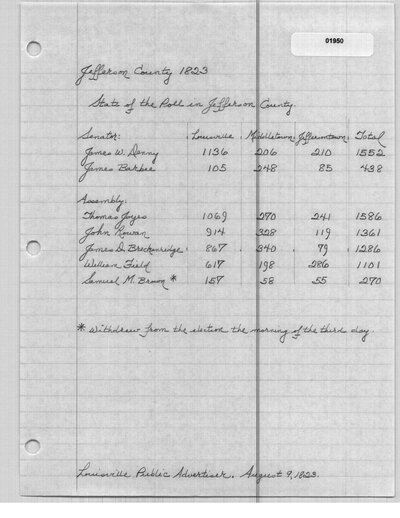 01950
Jefferson County 1823
State of the Poll in Jefferson County.
Senator: Louisville Middletown Jeffersontown Total
James W. Denny 1136 206 210 1552
James Barbee 105 248 85 438
Assembly:
Thomas Joyes 1069 270 241 1586
John Rowan 914 328 119 1361
James D. Breckenridge 867 340 79 1286
William Field 617 198 286 1101
Samuel M. Brown * 157 58 55 270
* Withdrew from the election the morning of the third day.
Louisville Public Advertiser. August 9, 1823.